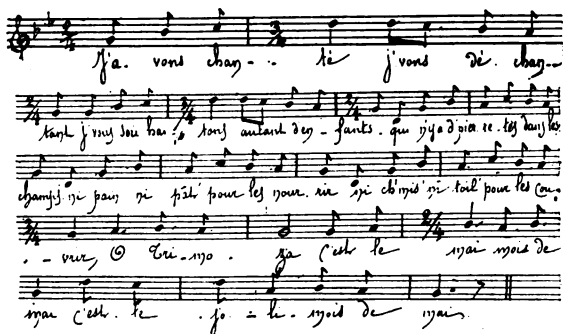 J'a. vons chan-. té j'vons dé. chan-
tant j'vous souhai. tons autant d'en-fants. qui n'y a d'pier. re. tes dans les
champs. ni pain ni pâté pour les nour. rir ni ch'mis' ni toil' pour les cou-
. - vrir, O Tri-mo. za c'est le mai mois de
mai c'est. le . jo - li. mois de mai.